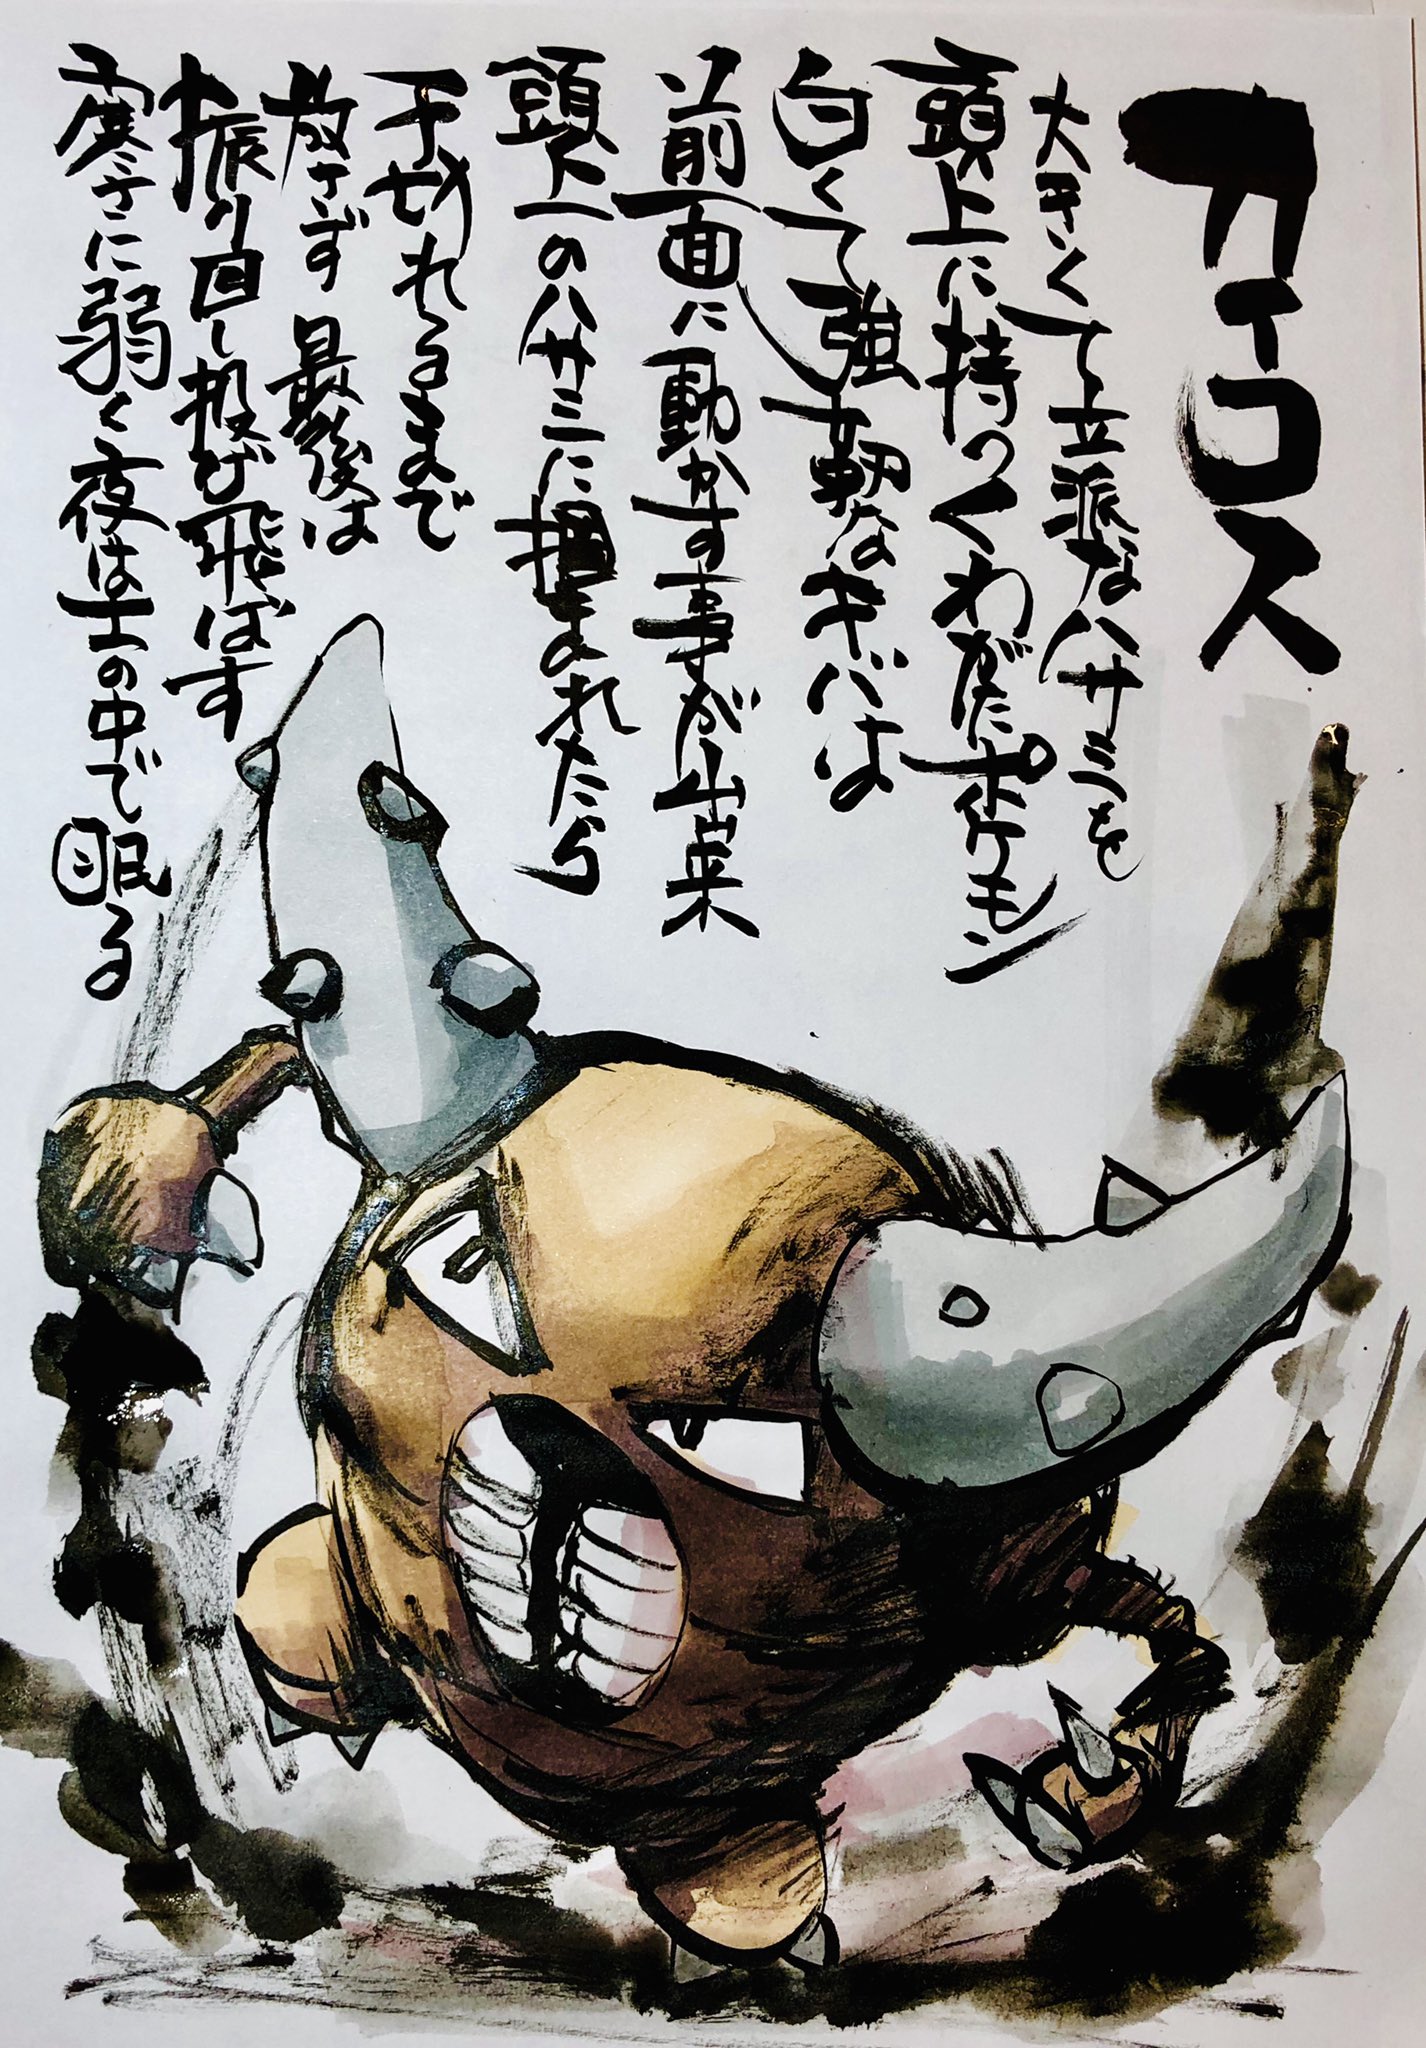 カイロス
大きくて立派なハサミを
頭上に持つくわがたポケモン
白くて強靭なキバは
前面に動かす事が出来
頭上のハサミに掴まれたら
千切れるまで
放さず 最後は
振り回し投げ飛ばす
寒さに弱く夜は土の中で眠る